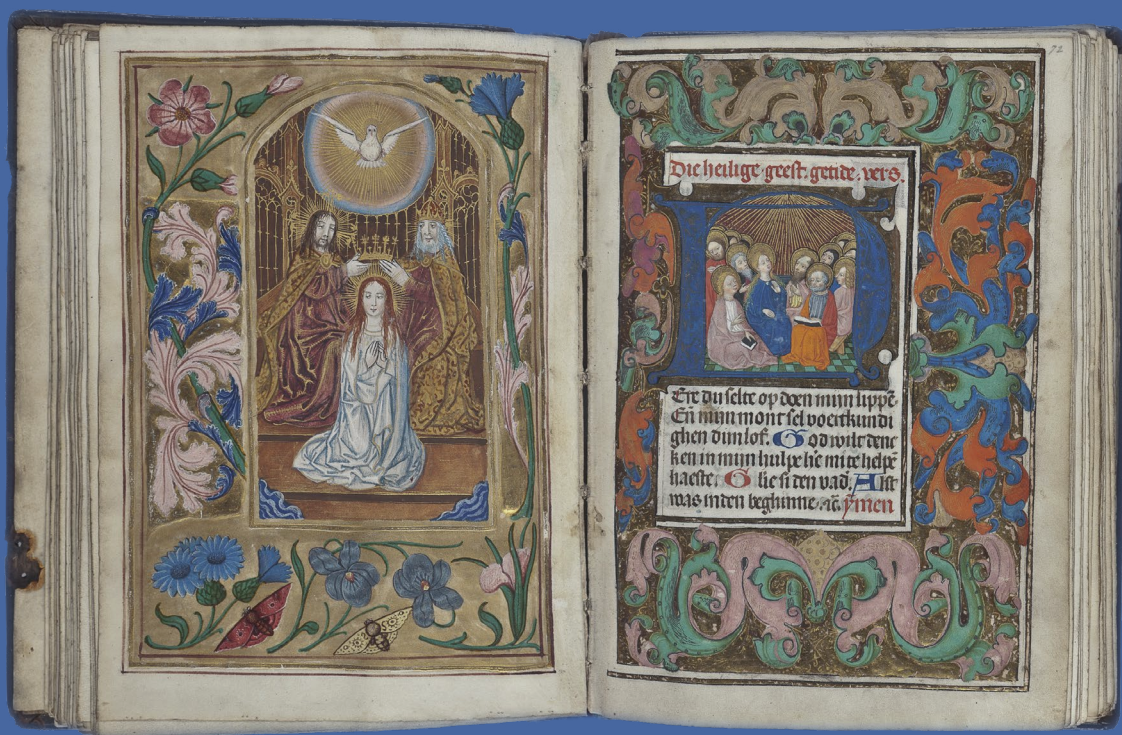 72
Die heilige geest getide. vers.
Ere du selte op doen mijn lippē
En̄ mijn mont sel voert kundi
ghen dijn lof. God wilt denc
ken in mijn hulpe hē mi te helpē
haeste. Glie si den vad. Alst
was inden beghinne. ac̄. ymen